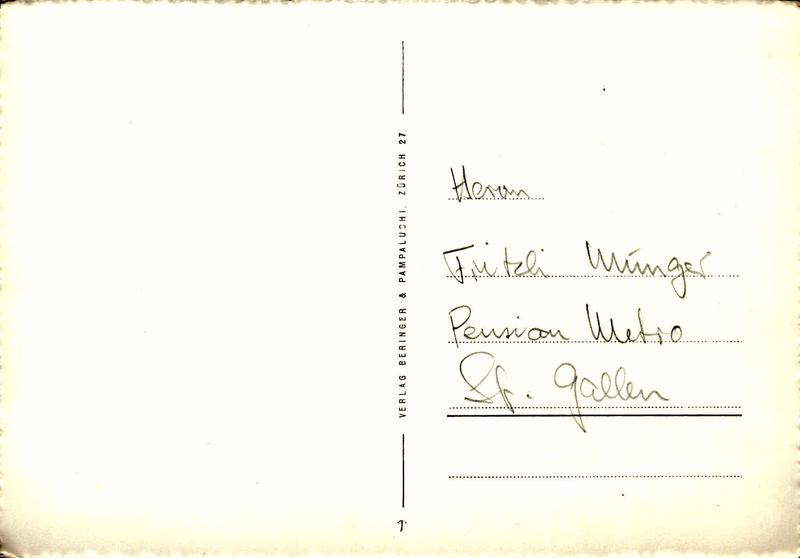 VERLAG BERINGER & PAMPALUCHI, ZÜRICH 27
Herrn
Fritzli Münger
Pension Metro
St. Gallen